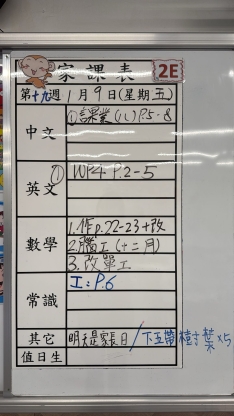 家課表 2E
第十九週 1月9日(星期五)
中文 ①課業(八)P.5-8
英文 ① WP4 P.2-5
數學 1.作p.22-23+改
2.腦工(十二月)
3.改單工
常識 工:P.6
其它 明天是家長日/下五帶樹葉x5
值日生